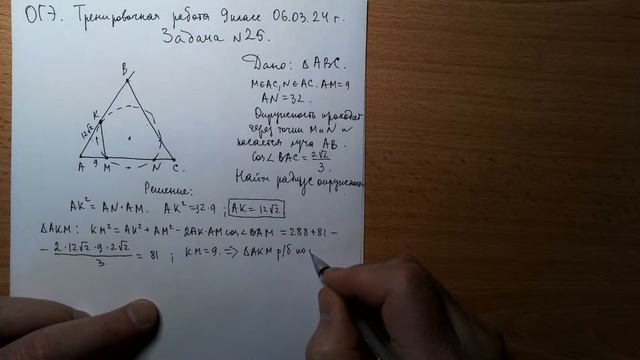 ОГЭ. Тренировочная работа 9 класс 06.03.24 г.
Задача №25.
Дано: △ABC.
M∈AC, N∈AC. AM=9
AN=32.
Окружность проходит
через точки M и N и
касается луча AB.
cos∠BAC = 2√2/3.
Найти радиус окружности
B
K
12√2
A 9 M N C.
Решение:
AK² = AN·AM. AK² = 32·9 ; AK = 12√2
△AKM: KM² = AK² + AM² − 2AK·AM cos∠BAM = 288 + 81 −
− 2·12√2·9·2√2/3 = 81 ; KM = 9. => △AKM р/б по